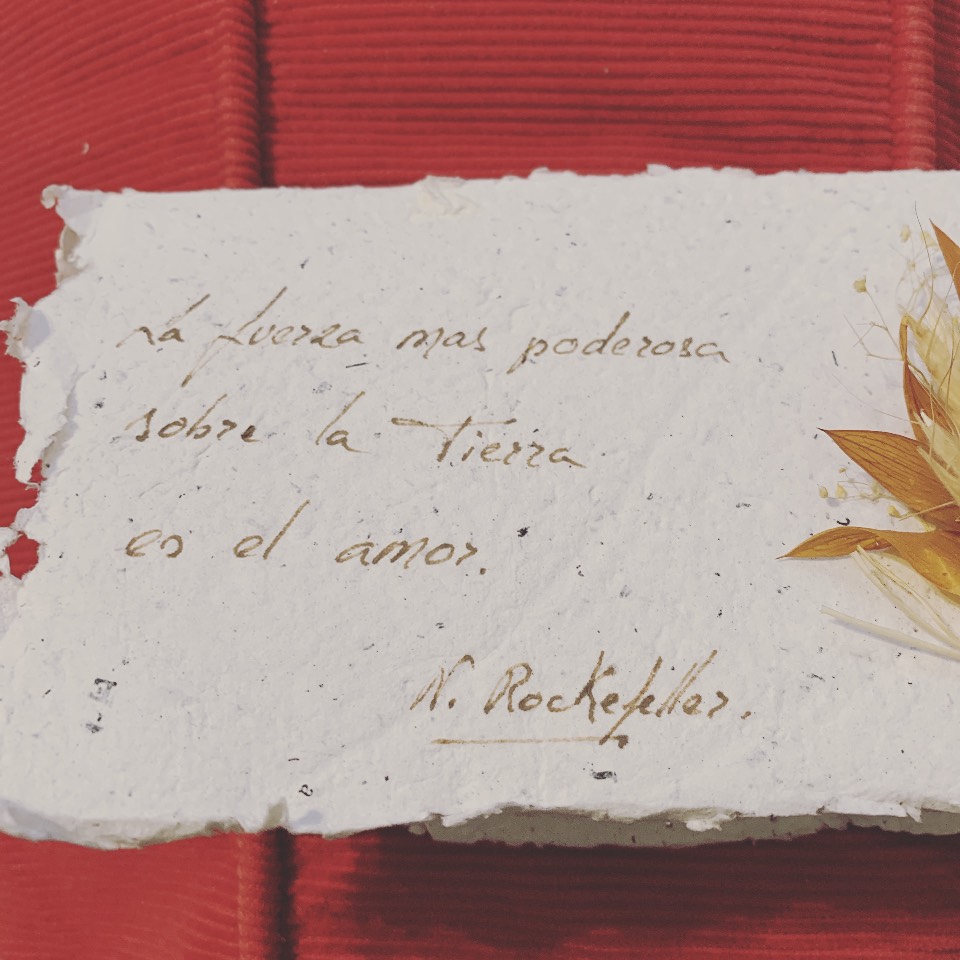 La fuerza mas poderosa
sobre la Tierra
es el amor.
N. Rockefeller.